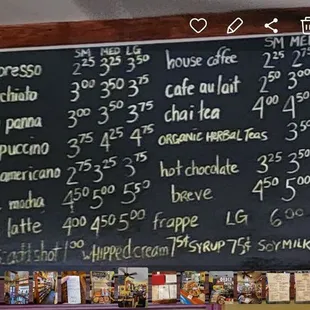 SM MED LG
presso 2²⁵ 3²⁵ 3⁵⁰
chiato 3⁰⁰ 3⁵⁰ 3⁷⁵
panna 3⁰⁰ 3⁵⁰ 3⁷⁵
puccino 3⁷⁵ 4²⁵ 4⁷⁵
americano 2⁷⁵ 3²⁵ 3⁷⁵
mocha 4⁵⁰ 5⁰⁰ 5⁵⁰
latte 4⁰⁰ 4⁵⁰ 5⁰⁰
SM ME
house coffee 2²⁵ 2⁷⁵
cafe au lait 2⁵⁰ 3⁰⁰
chai tea 4⁰⁰ 4⁵⁰
ORGANIC HERBAL TEAS 3⁵⁰
hot chocolate 3²⁵ 3⁵⁰
breve 4⁵⁰ 5⁰⁰
frappe LG 6⁰⁰
shot 1⁰⁰ WHIPPED CREAM 75¢ SYRUP 75¢ SOY MILK